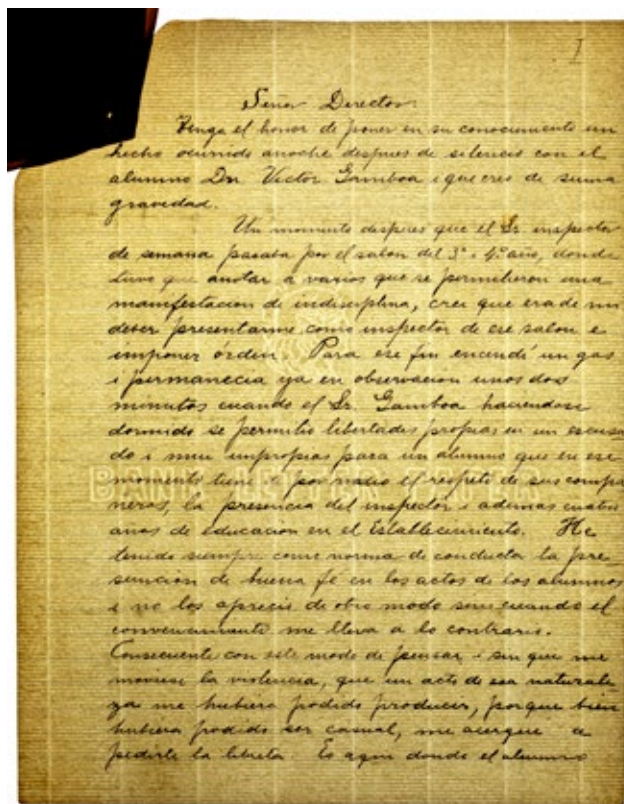 I
Señor Director:
Tengo el honor de poner en su conocimiento un
hecho ocurrido anoche despues de silencio con el
alumno Dn. Victor Gamboa i que creo de suma
gravedad.
Un momento despues que el Sr. inspector
de semana pasaba por el salon del 3° i 4° año, donde
tuvo que anotar a varios que se permitieron una
manifestacion de indisciplina, crei que era de mi
deber presentarme como inspector de ese salon e
imponer órden. Para ese fin encendí un gas
i permanecia ya en observacion unos dos
minutos cuando el Sr. Gamboa haciendose
dormido se permitio libertades propias en un escusa
do i mui impropias para un alumno que en ese
momento tiene de por medio el respeto de sus compa
ñeros, la presencia del inspector i ademas cuatro
años de educacion en el Establecimiento. He
tenido siempre como norma de conducta la pre-
suncion de buena fé en los actos de los alumnos
i no los aprecio de otro modo sino cuando el
convencimiento me lleva a lo contrario.
Consecuente con este modo de pensar i sin que me
moviese la violencia, que un acto de esa naturale
za me hubiera podido producir, porque bien
hubiera podido ser casual, me acerque a
pedirle la libreta. Es aqui donde el alumno
BANK LETTER PAPER